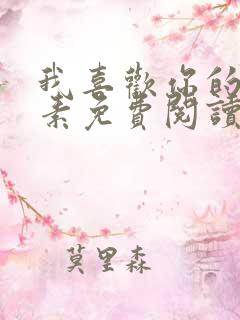 我喜歡你的
素免費閱讀
莫里森